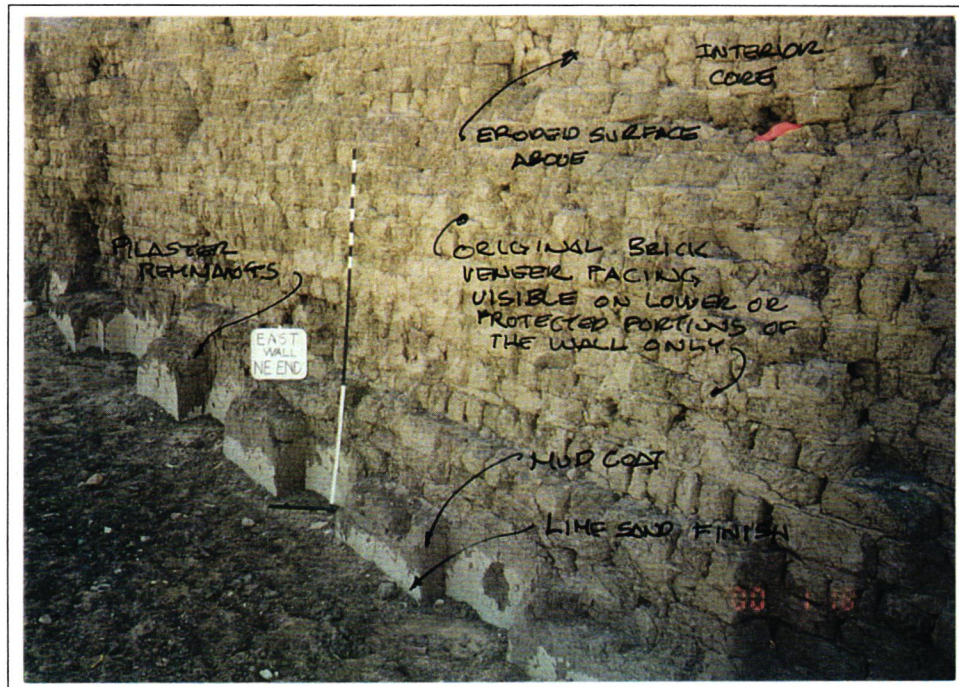 INTERIOR
CORE
ERODED SURFACE
ABOVE
PILASTER
REMNANTS
ORIGINAL BRICK
VENEER FACING
VISIBLE ON LOWER OR
PROTECTED PORTIONS OF
THE WALL ONLY
EAST
WALL
NE END
MUD COAT
LIME SAND FINISH